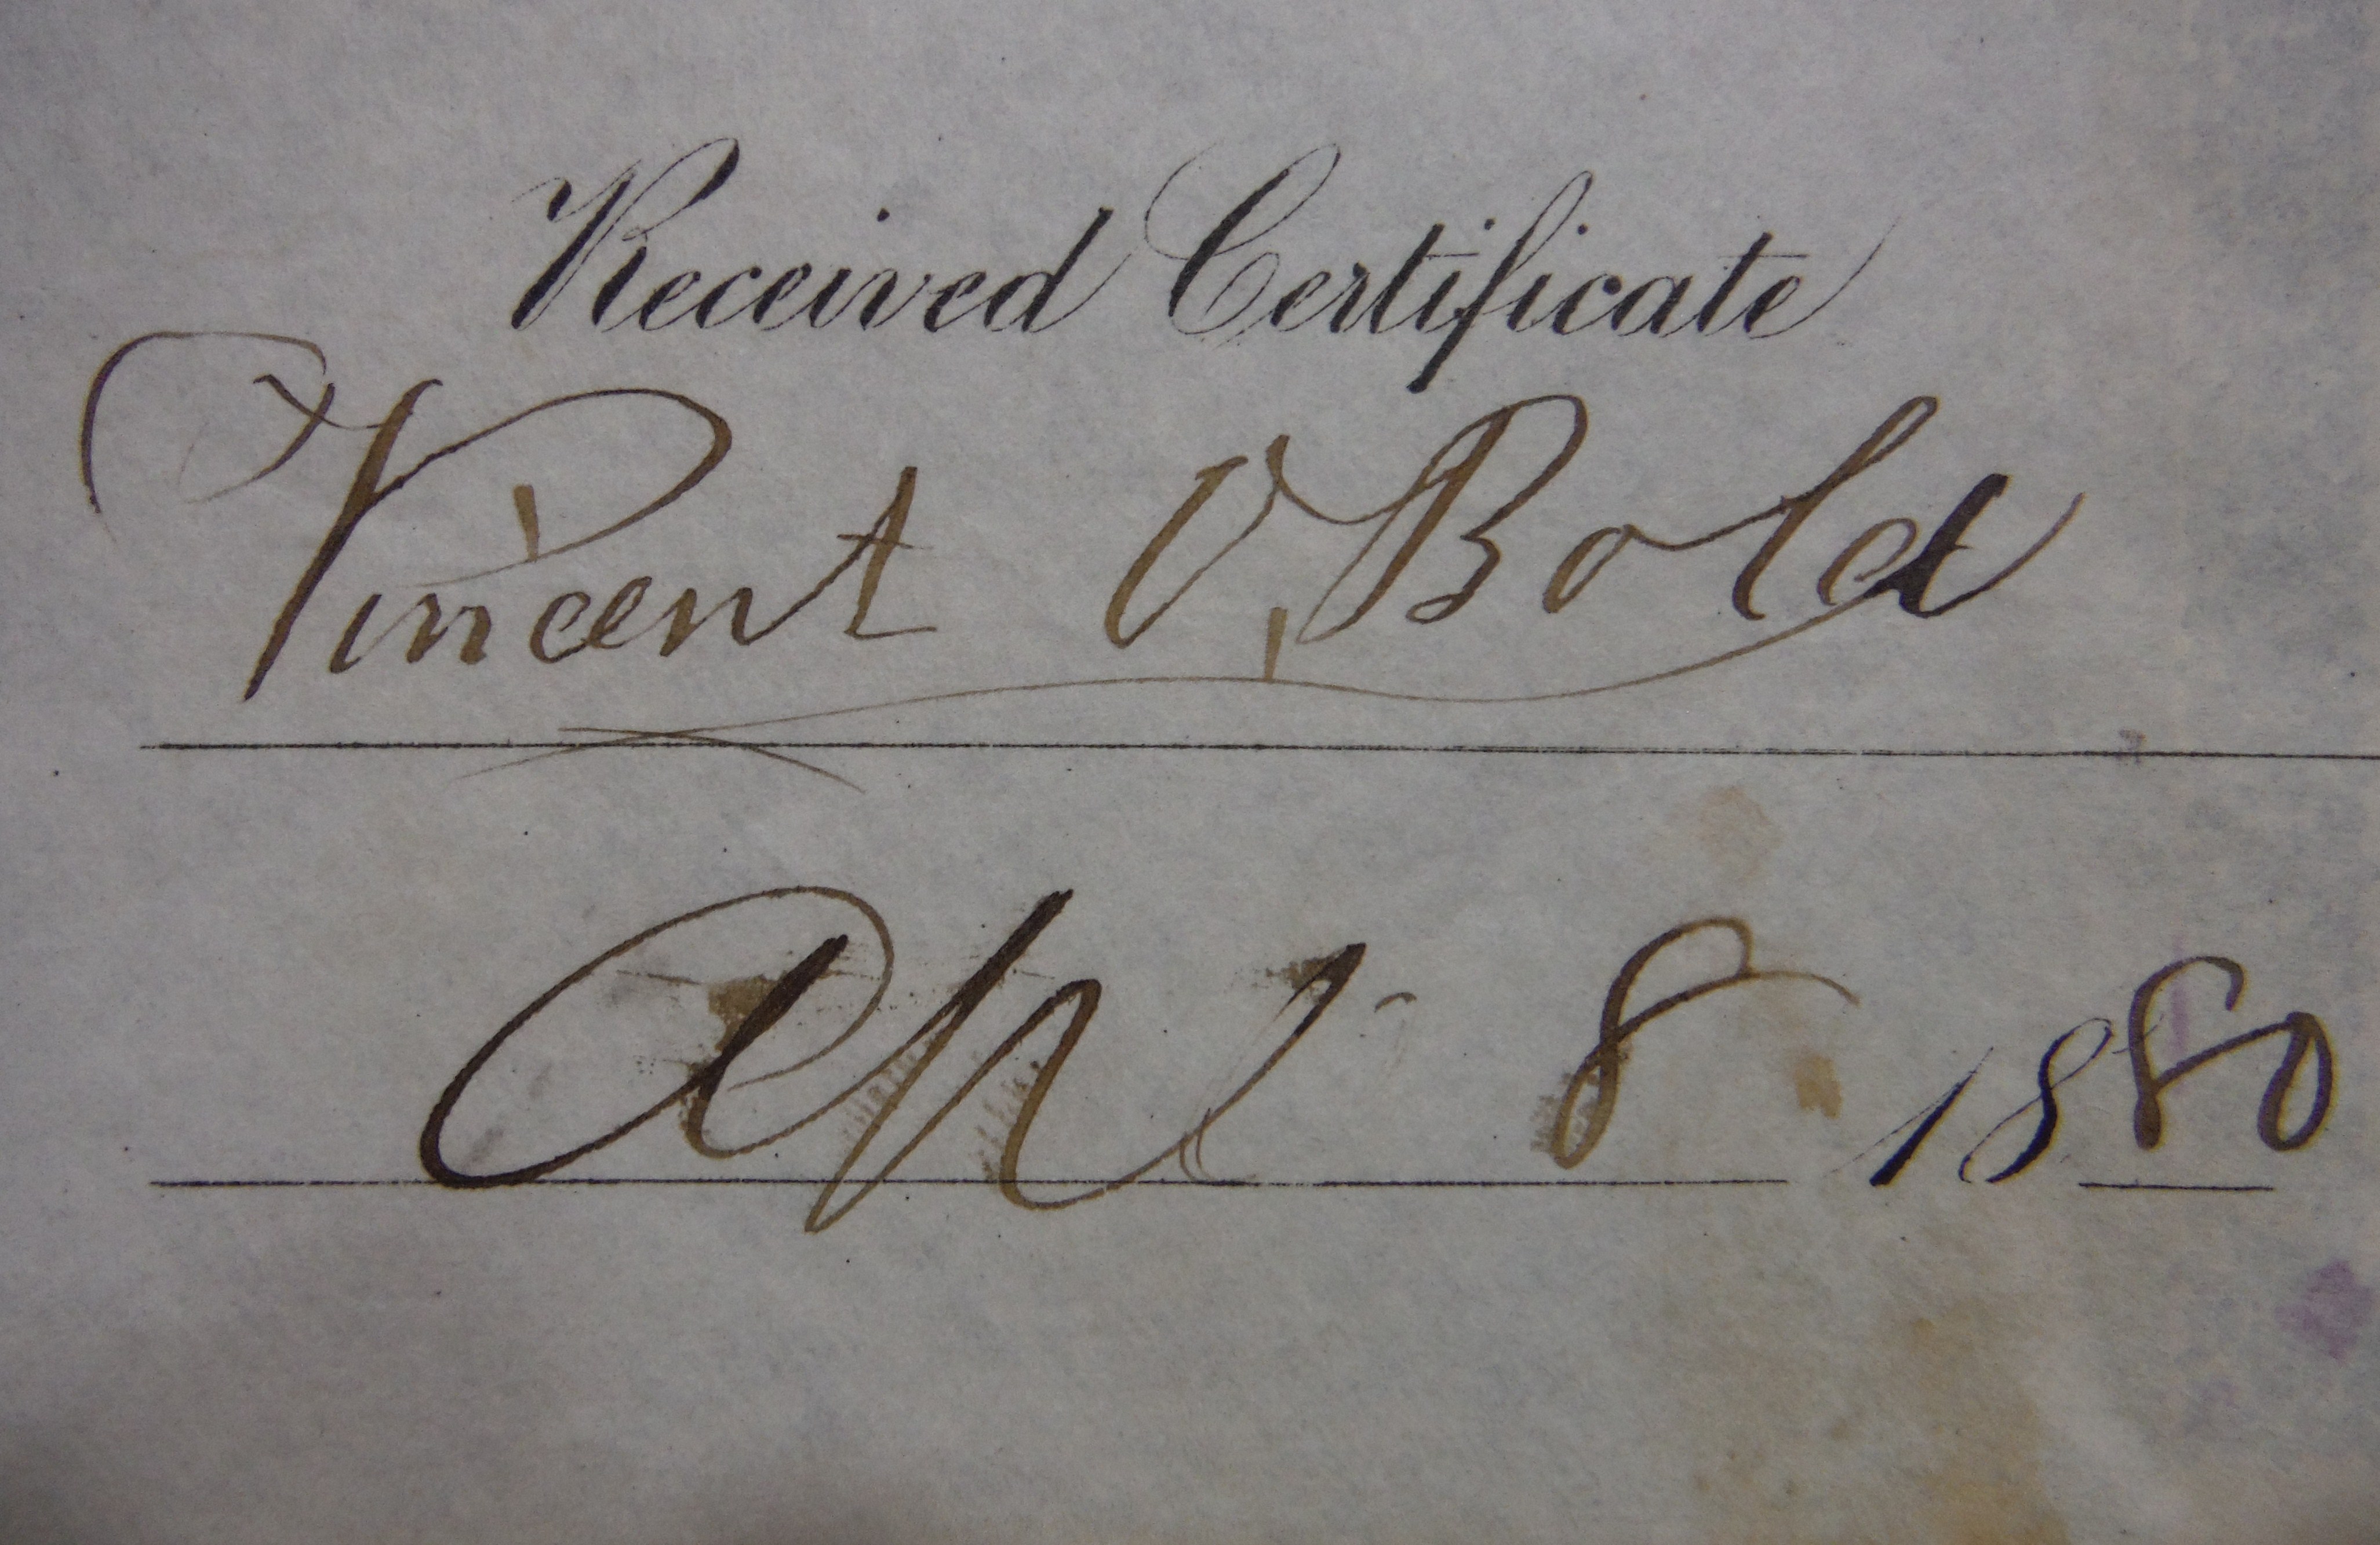 Received Certificate
Vincent V. Bold
Apl 8 1880